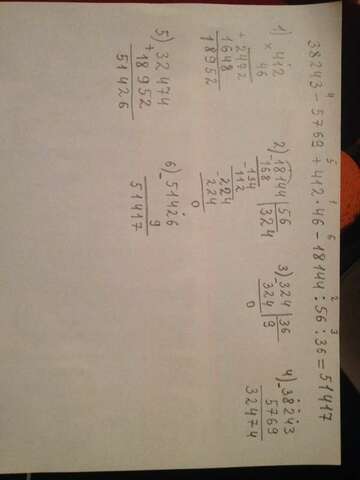 4 5 1 6 2 3
38243 - 5769 + 412 · 46 - 18144 : 56 : 36 = 51417
1) 412
× 46
+ 2472
1648
18952
2) 18144 | 56
- 168 | 324
- 134
112
- 224
224
0
3) - 324 | 36
324 | 9
0
4) - 38243
5769
32474
5) 32474
+ 18952
51426
6) - 51426
9
51417